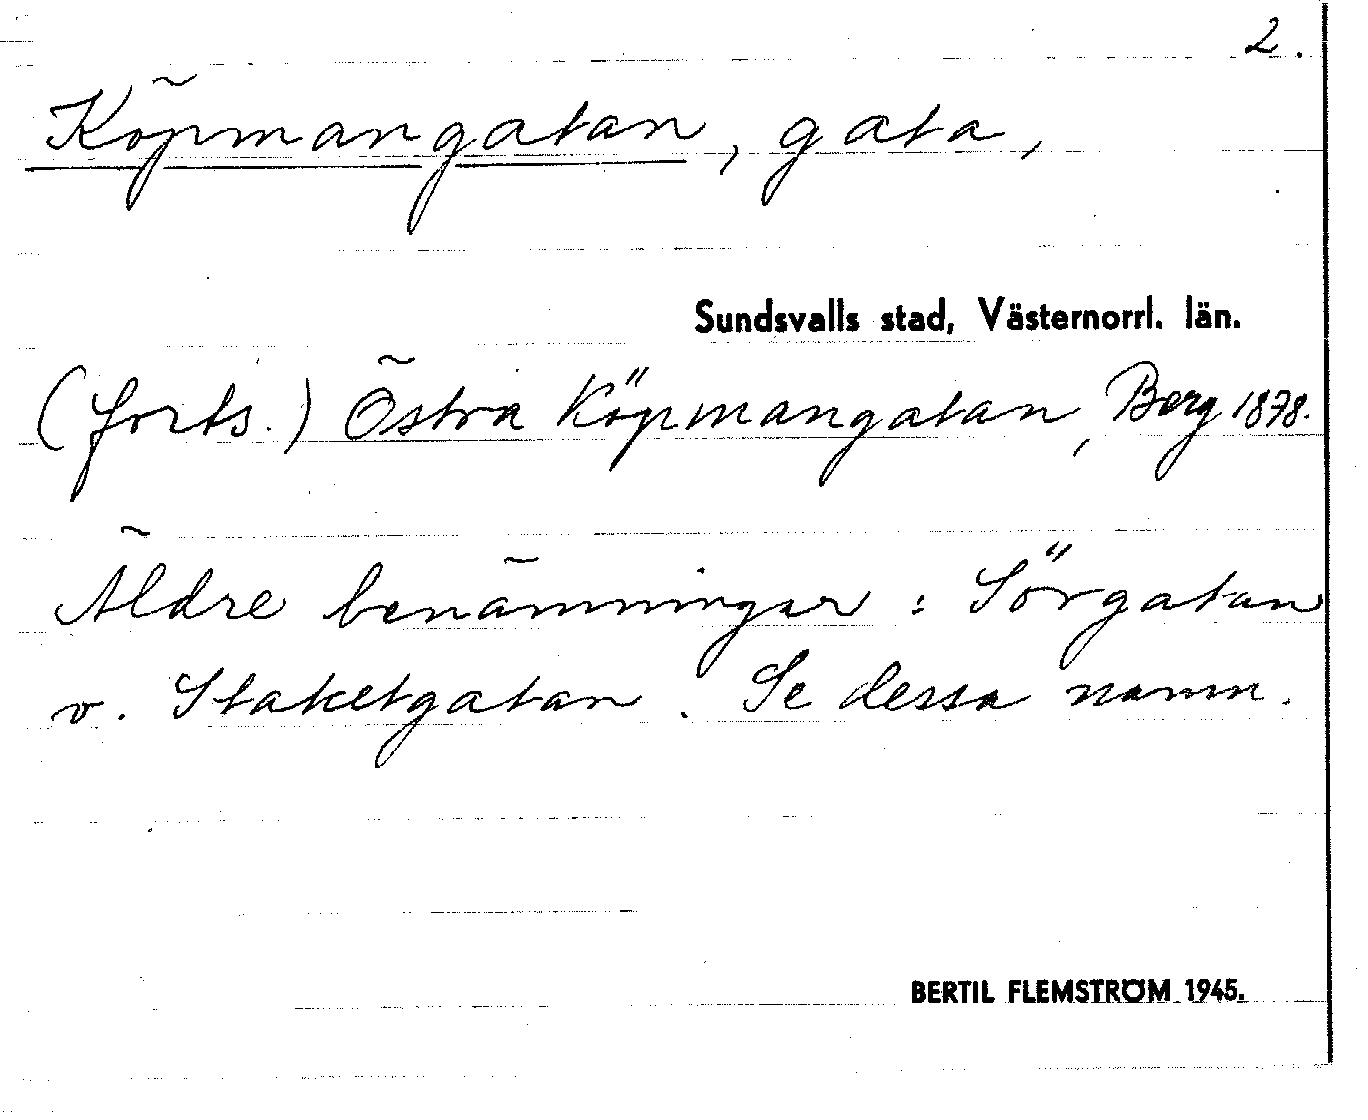 2.
Köpmangatan, gata,
Sundsvalls stad, Västernorrl. län.
(forts.) Östra Köpmangatan, Berg 1878.
Äldre benämningar: Sörgatan
o. Staketgatan. Se dessa namn.
BERTIL FLEMSTRÖM 1945.